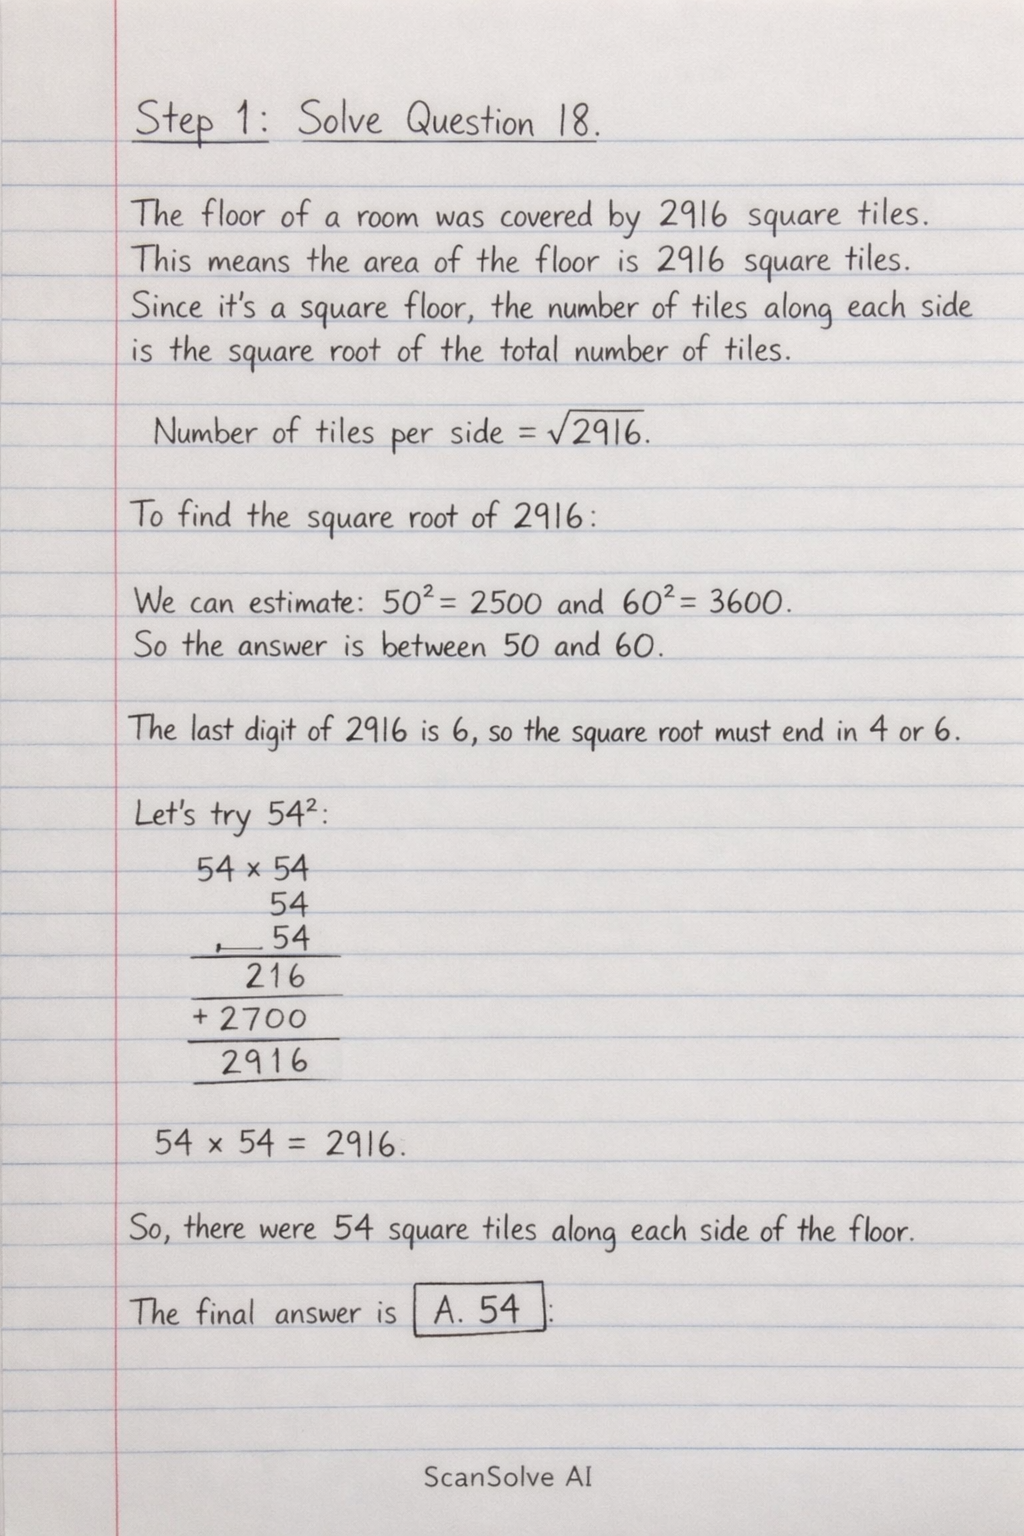 Step 1: Solve Question 18.
The floor of a room was covered by 2916 square tiles.
This means the area of the floor is 2916 square tiles.
Since it's a square floor, the number of tiles along each side
is the square root of the total number of tiles.
Number of tiles per side = √2916.
To find the square root of 2916:
We can estimate: 50² = 2500 and 60² = 3600.
So the answer is between 50 and 60.
The last digit of 2916 is 6, so the square root must end in 4 or 6.
Let's try 54²:
54 × 54
54
54
216
+ 2700
2916
54 × 54 = 2916.
So, there were 54 square tiles along each side of the floor.
The final answer is A. 54:
ScanSolve AI